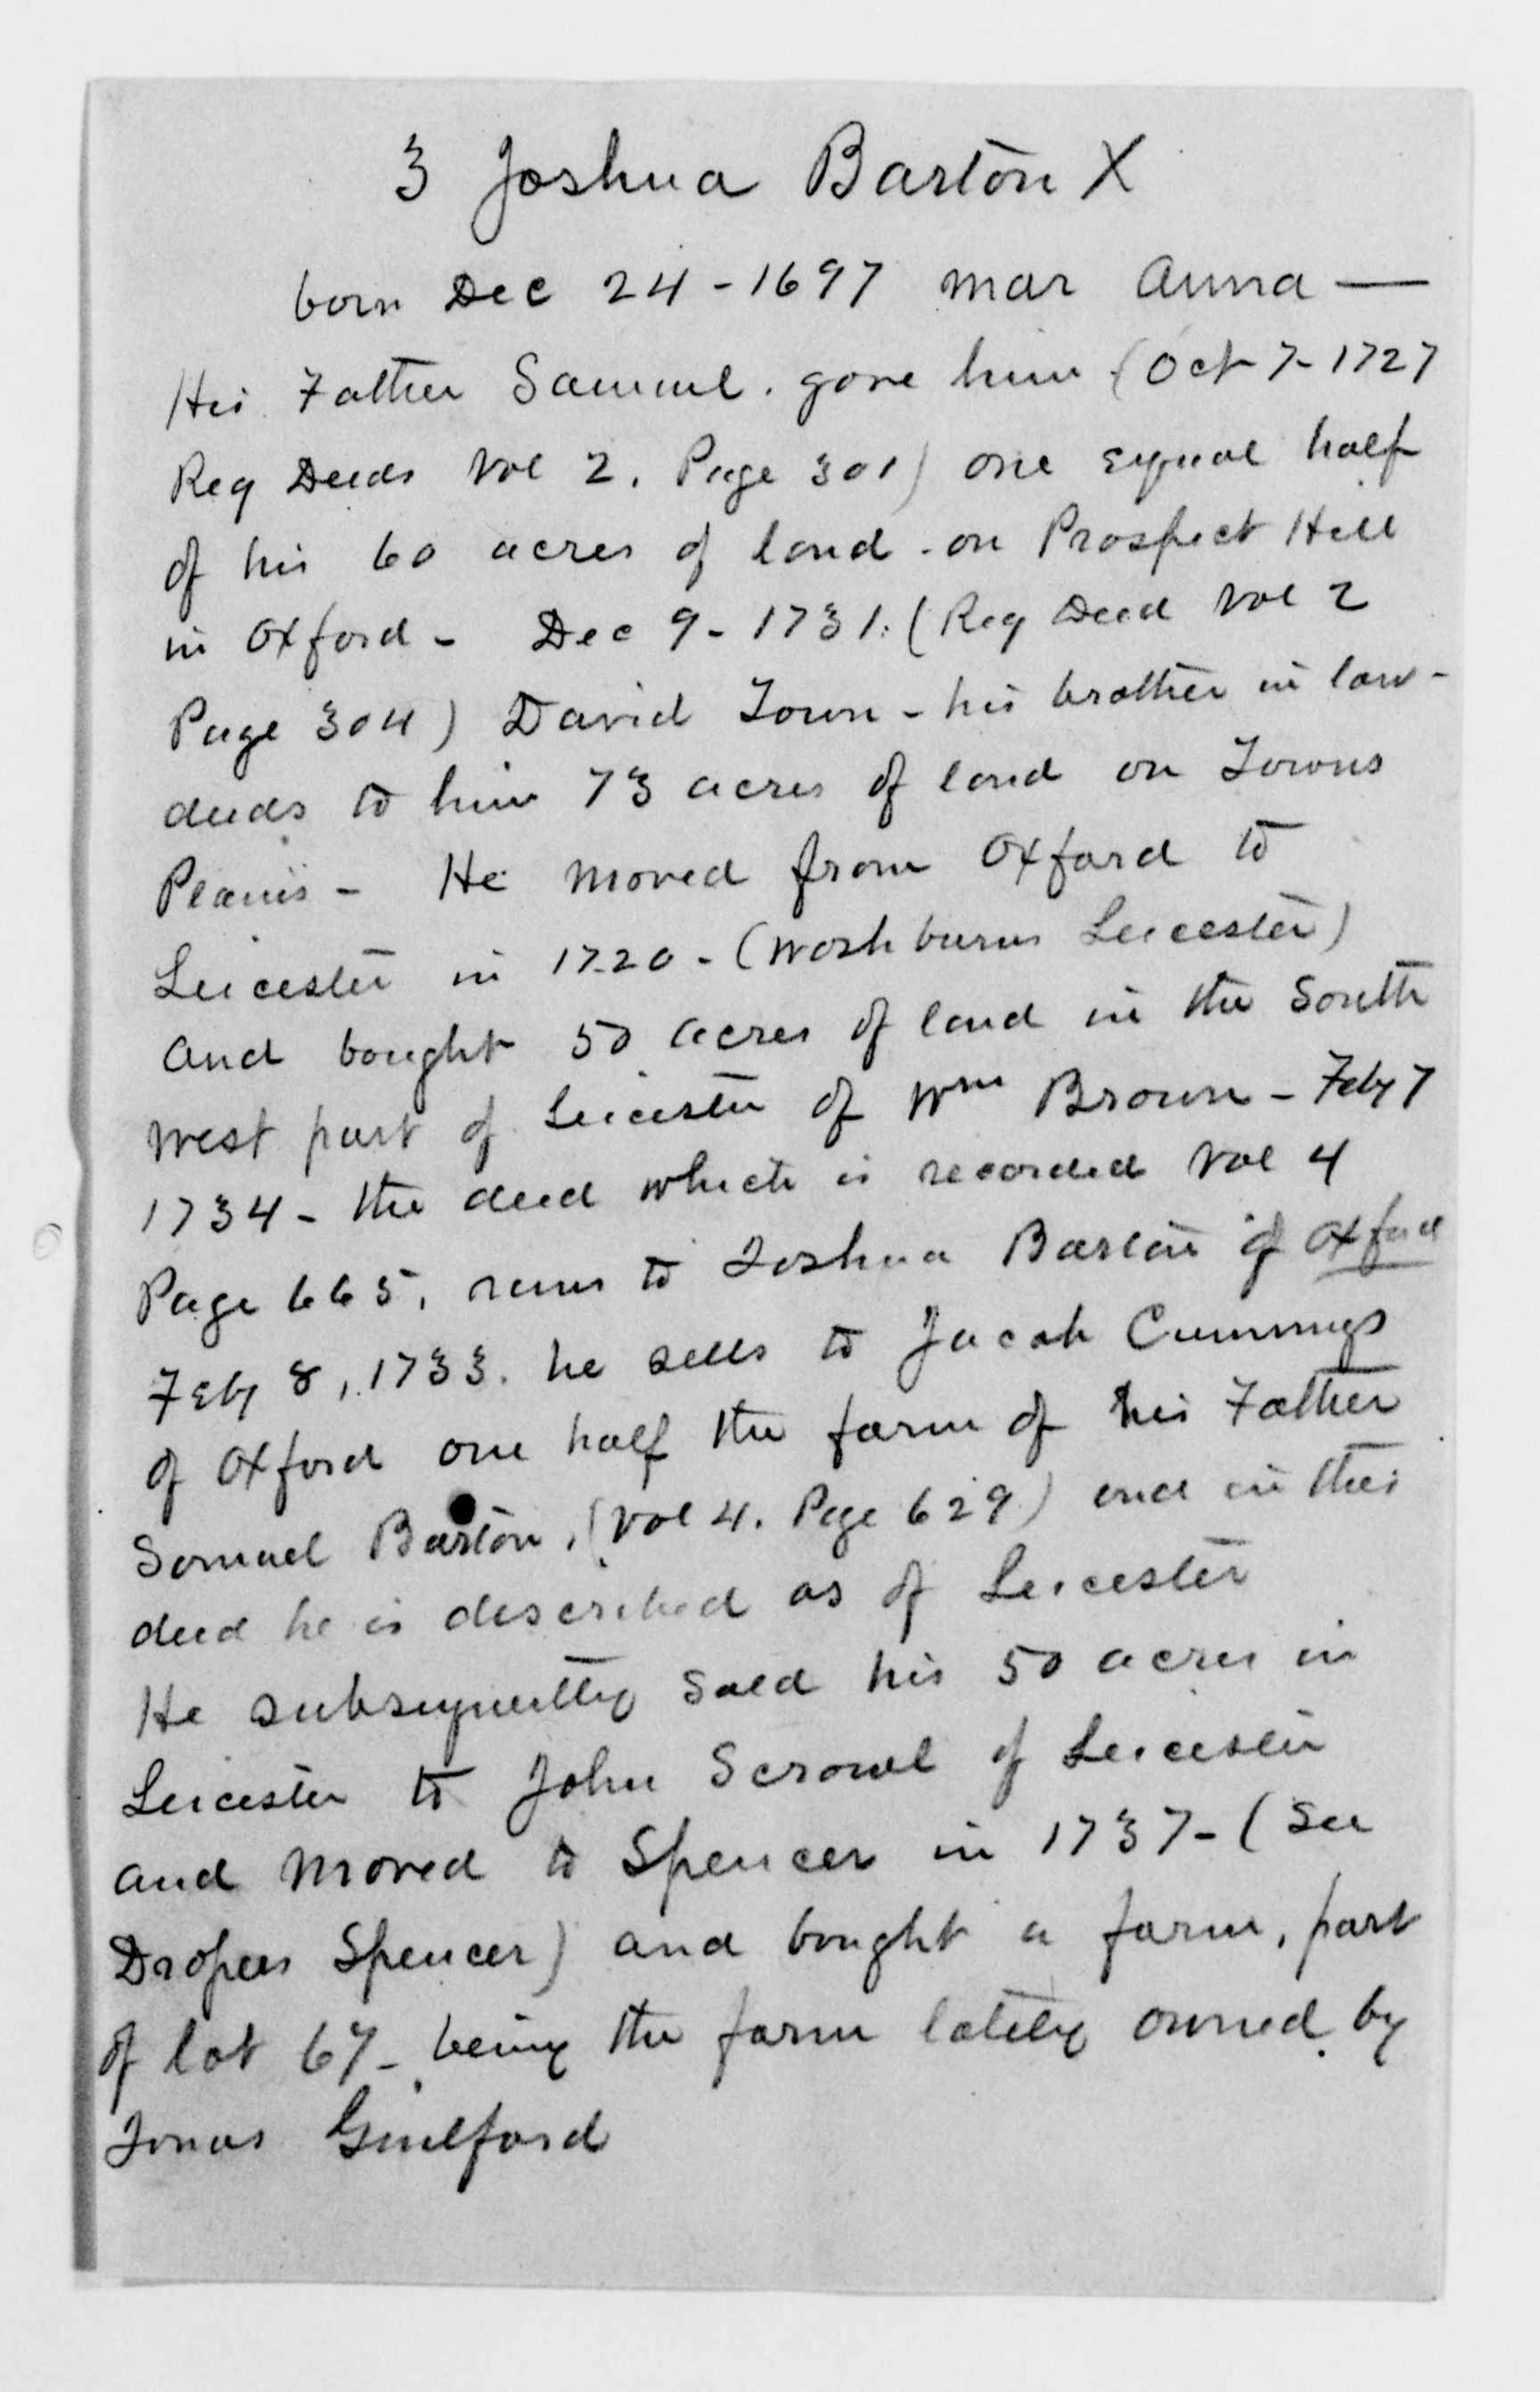 3 Joshua Barton X
born Dec 24 - 1697 mar Anna —
His Father Samuel. gave him (Oct 7 - 1727
Reg Deeds Vol 2. Page 301) one equal half
of his 60 acres of land - on Prospect Hill
in Oxford - Dec 9 - 1731. (Reg Deed Vol 2
Page 304) David Town - his brother in law -
deeds to him 73 acres of land on Towns
Plains - He moved from Oxford to
Leicester in 1720 - (Washburns Leicester)
and bought 50 acres of land in the South
West part of Leicester of Wm Brown - Feby 7
1734 - the deed which is recorded Vol 4
Page 665, runs to Joshua Barton of Oxford
Feby 8, 1733. he sells to Jacob Cummings
of Oxford one half the farm of his Father
Samuel Barton, (Vol 4. Page 629) and in this
deed he is described as of Leicester
He subsequently sold his 50 acres in
Leicester to John Scrowl of Leicester
and moved to Spencer in 1737 - (See
Drapers Spencer) and bought a farm, part
of lot 67 - being the farm lately owned by
Jonas Guilford